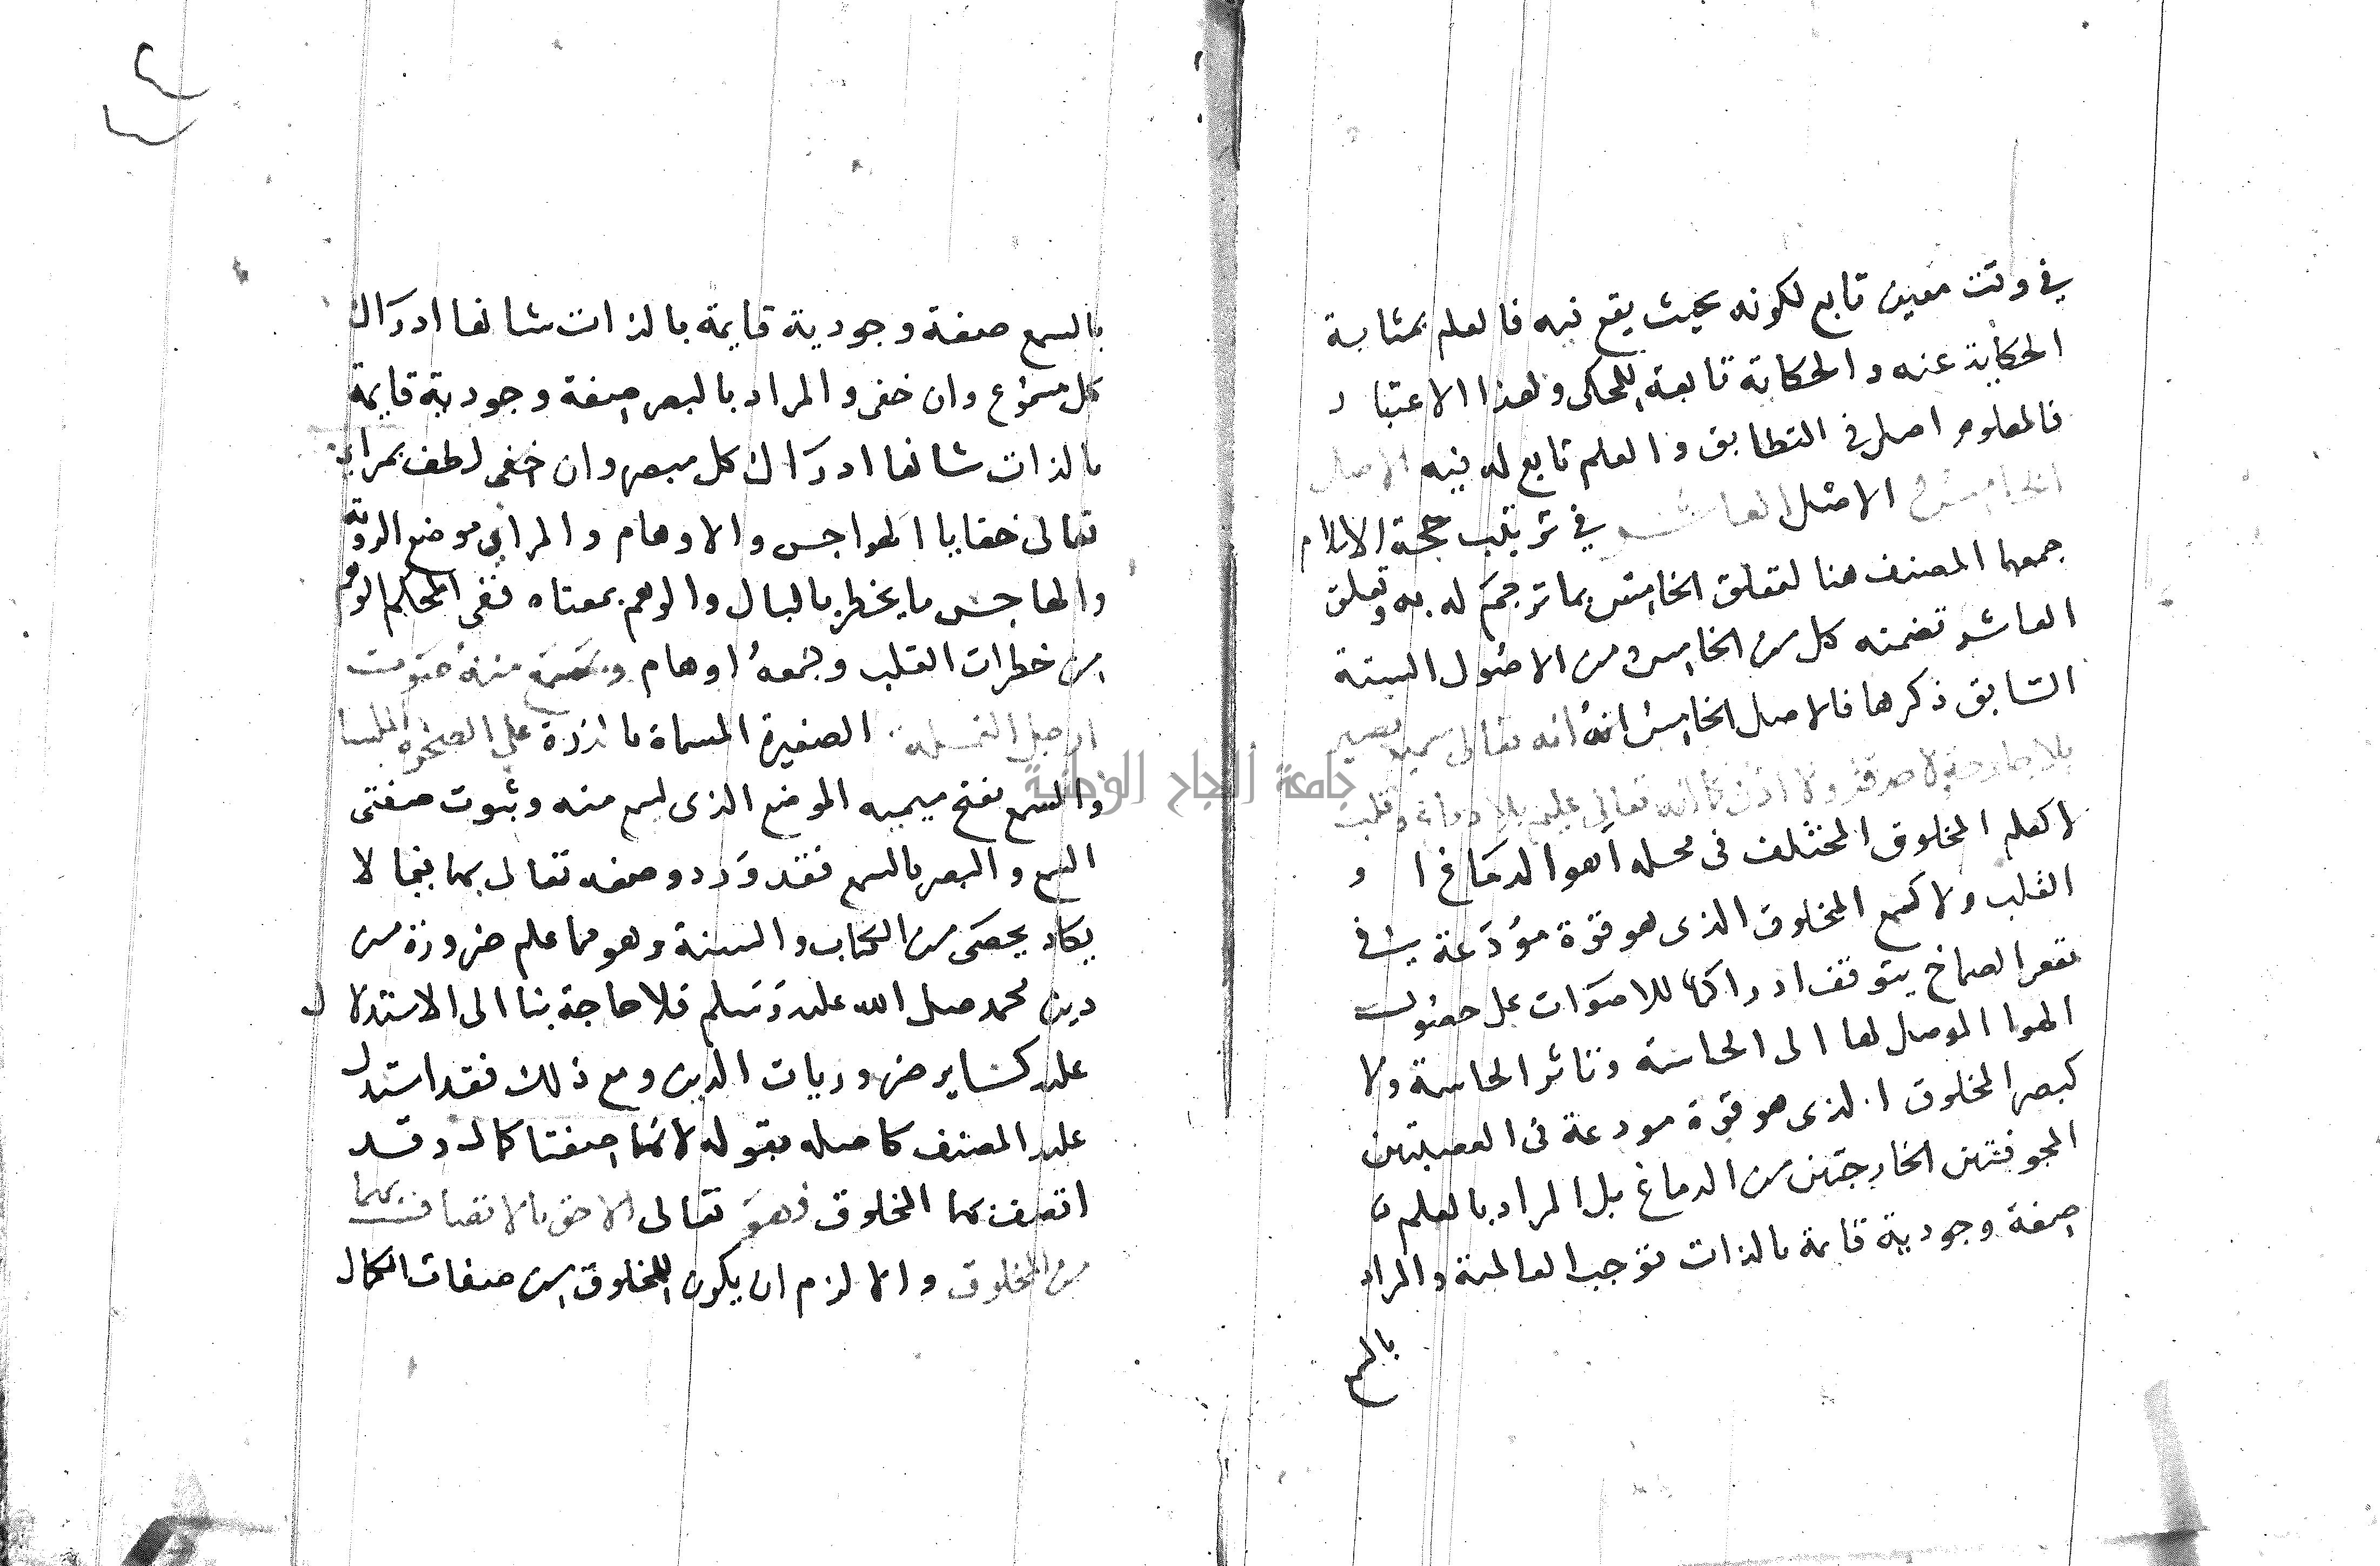 في وقت معين تابع لكونه بحيث يقع فيه فالعلم بمثابة
الحكاية عنه والحكاية تابعة للمحكى ولهذا الاعتبار
فالمعلوم اصل في التطابق والعلم تابع له فيه الاصل
الخامس الاصل العاشر في ترتيب حجة الاسلام
جمعهما المصنف هنا لتعلق الخامس بما ترجم له به وتعلق
العاشر تضمنه كل من الخامس ومن الاصول الستة
السابق ذكرها فالاصل الخامس انه تعالى سميع بصير
بلا جارحة لا حدقة ولا اذن كما انه تعالى عليم بلا دماغ وقلب
لا كعلم المخلوق المختلف في محله اهو الدماغ او
القلب ولا كسمع المخلوق الذى هو قوة مودعة في
مقعر الصماخ يتوقف ادراكها للاصوات على حصول
الهوا الموصل لها الى الحاسة وتاثر الحاسة ولا
كبصر المخلوق الذى هو قوة مودعة في العصبتين
المجوفتين الخارجتين من الدماغ بل المراد بالعلم
صفة وجودية قايمة بالذات توجب العالمية والمراد
بالسمع
بالسمع صفة وجودية قايمة بالذات شانها ادراك
كل مسموع وان خفى والمراد بالبصر صفة وجودية قايمة
بالذات شانها ادراك كل مبصر وان خفى لطف بمرائ
تعالى خفايا الهواجس والاوهام والمرائ موضع الروية
والهاجس ما يخطر بالبال والوهم بمعناه ففى المحكم الوهم
من خطرات القلب وجمعه اوهام وبمسمع منه صوت
ارجل النملة الصغيرة المسماة بالذرة على الصخرة الملسا
والمسمع بفتح ميميه الموضع الذى يسمع منه وثبوت صفتى
السمع والبصر بالسمع فقد ورد وصفه تعالى بهما فيما لا
يكاد يحصى من الكتاب والسنة وهو مما علم ضرورة من
دين محمد صلى الله عليه وسلم فلا حاجة بنا الى الاستدلال
عليه كساير ضروريات الدين ومع ذلك فقد استدل
عليه المصنف كاصله بقوله لانهما صفتا كمال وقد
اتصف بهما المخلوق فهو تعالى الاحق بالاتصاف بهما
من المخلوق والا لزم ان يكون للمخلوق من صفات الكمال
جامعة النجاح الوطنية